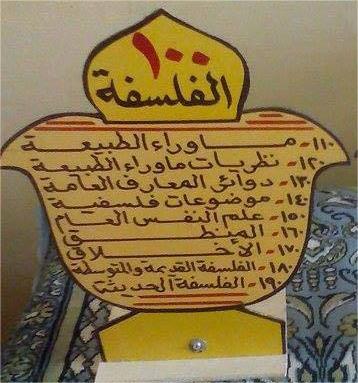 ١٠٠
الفلسفة
١١٠- ماوراء الطبيعة
١٢٠- نظريات ماوراء الطبيعة
١٣٠- دوائر المعارف العامة
١٤٠- موضوعات فلسفية
١٥٠- علم النفس العام
١٦٠- المنطق
١٧٠- الأخلاق
١٨٠- الفلسفة القديمة والمتوسطة
١٩٠- الفلسفة الحديثة